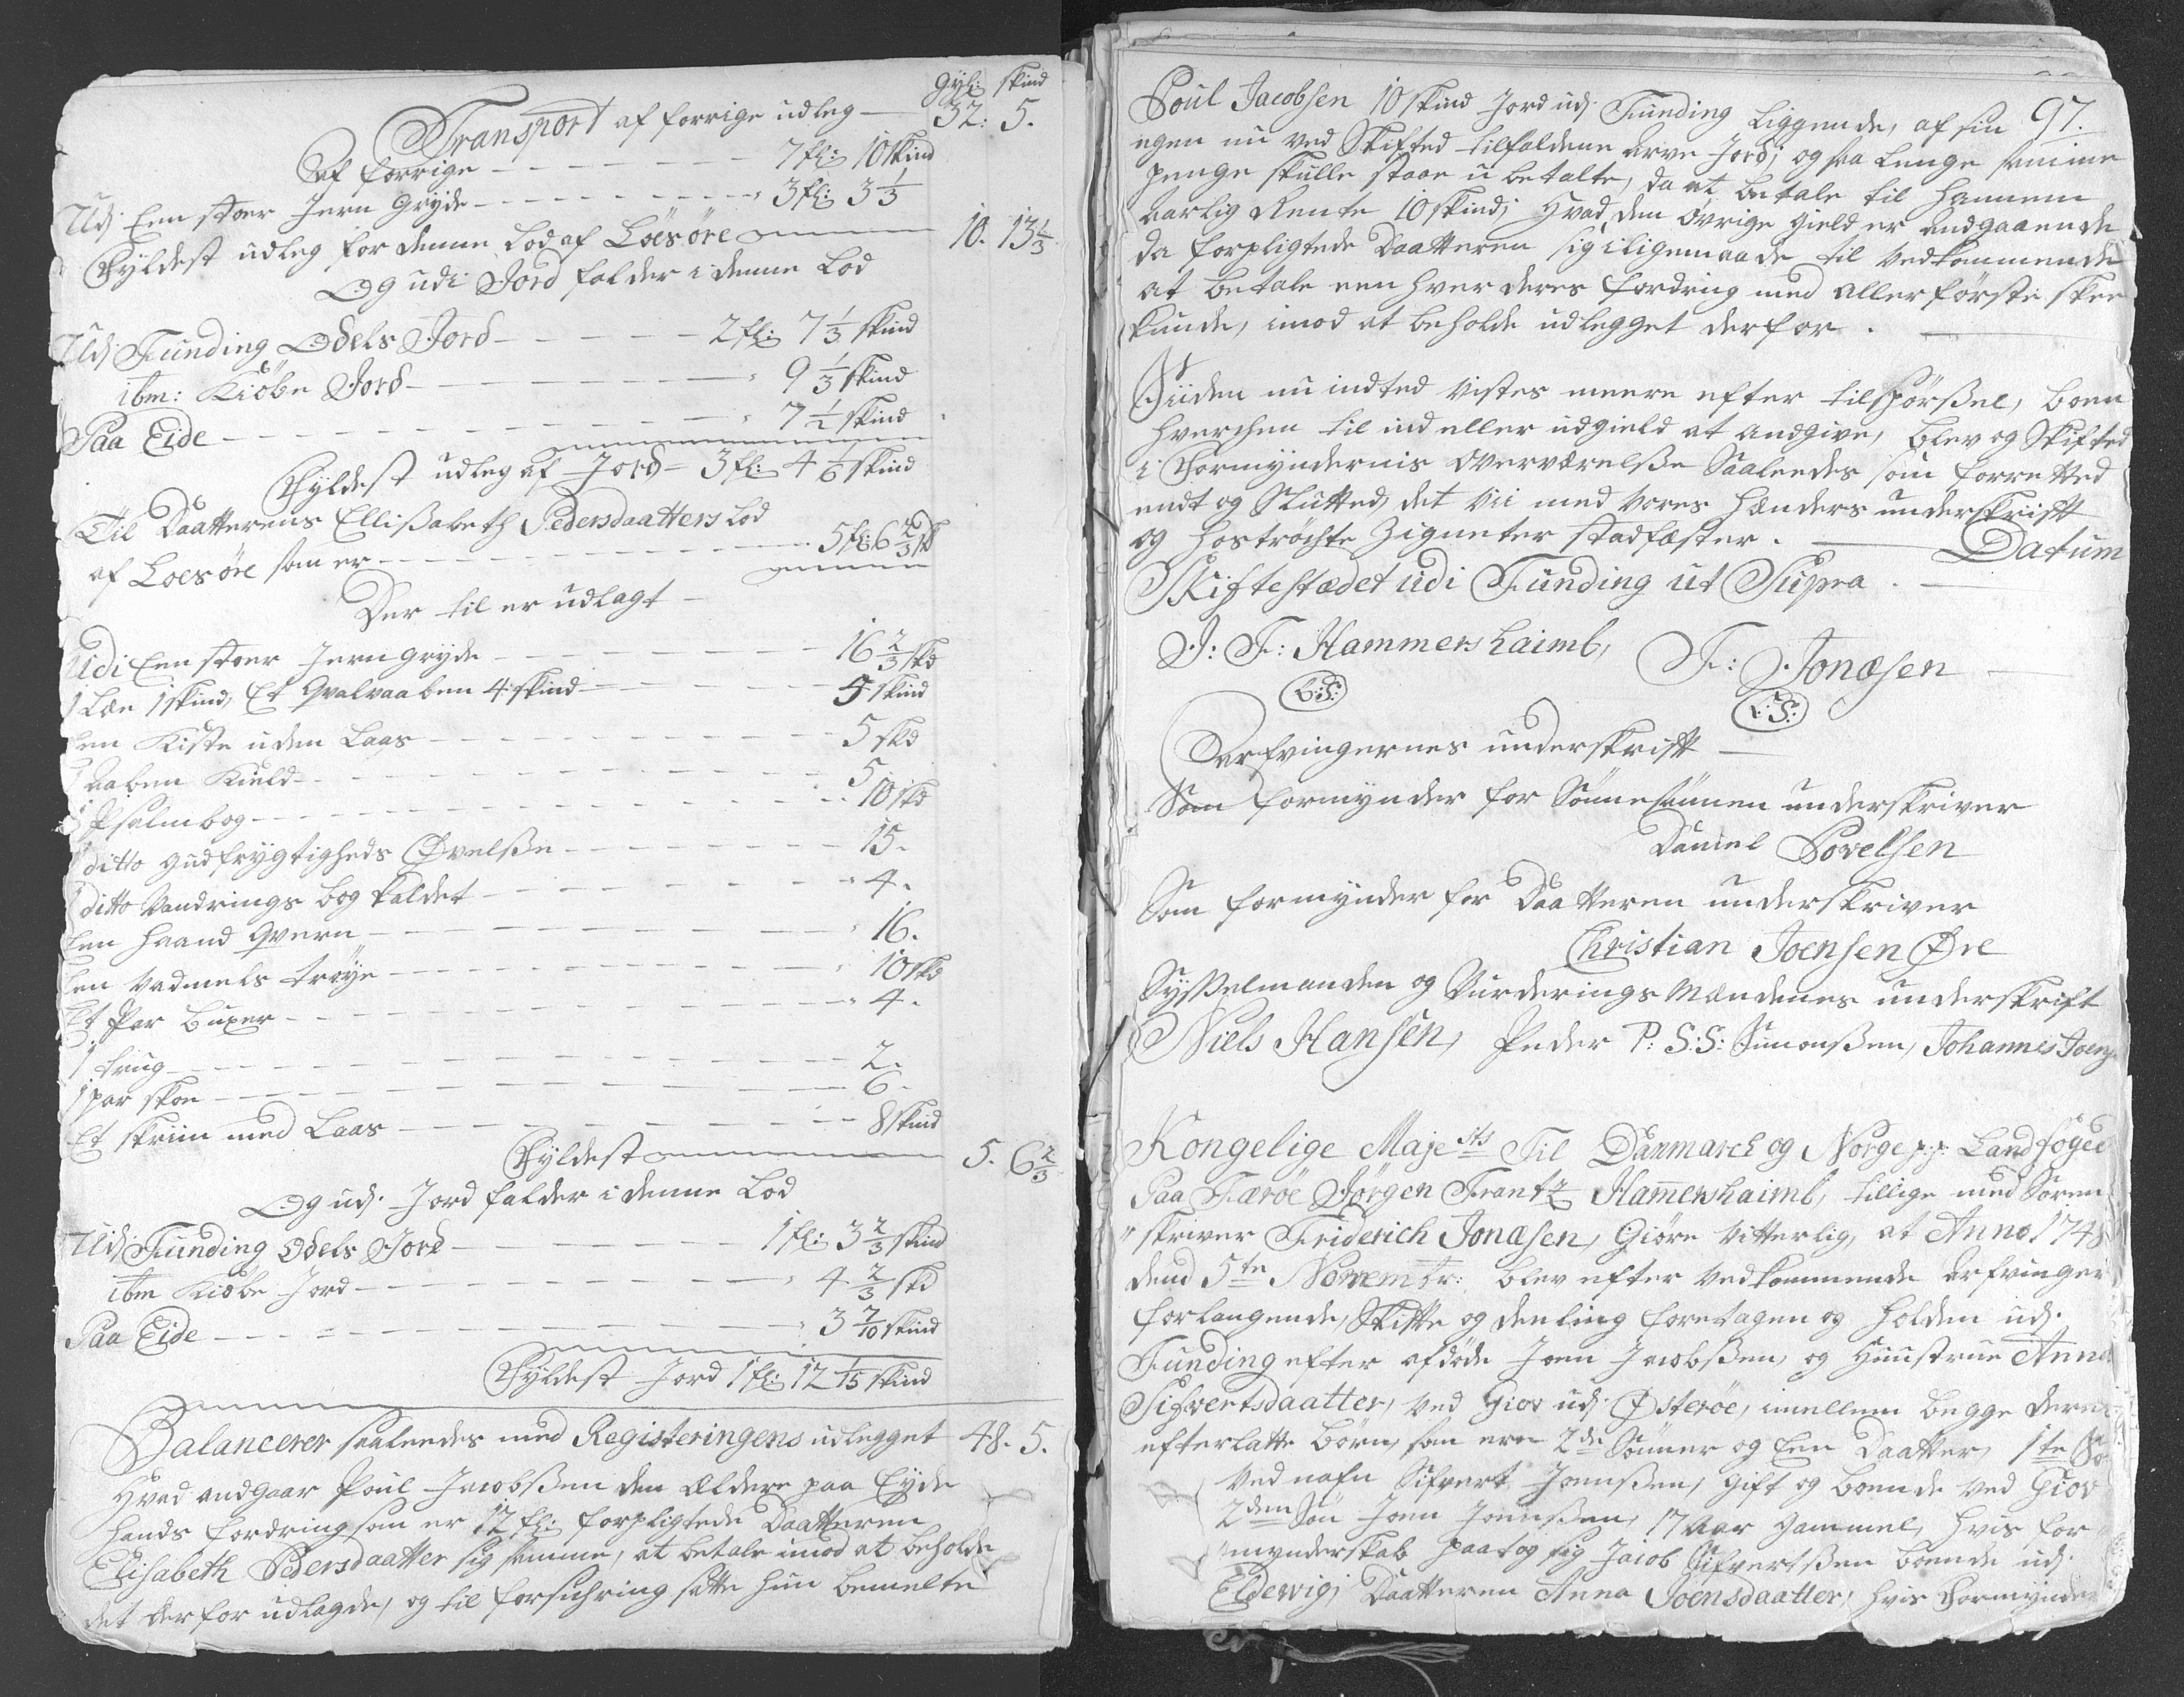 gyl: skind
Transport af forrige udleg — 32: 5.
Af forrige — 7 fl: 10 skind
Udj Een stoer Jern Gryde — 3 fl: 3 1/3
Fyldest udleg for denne Lod af Löesöre 10. 13 1/3
Og udi Jord falder i denne Lod
Udj Funding Odels Jord — 2 fl: 7 1/3 skind
ibm: Kiöbe Jord — 9 1/3 skind
Paa Eide — 7 1/2 skind
Fyldest udleg af Jord — 3 fl: 4 1/6 skind
Til Daatterens Ellißabeth Pedersdaatters Lod
af Loesöre som er — 5 fl: 6 2/3 sk
Der til er udlagt —
Udi Een stoer Jern gryde — 16 2/3 skd
1 Læe 1 skind, Et Hvalvaaben 4 skind — 5 skind
Een Kiste uden Laas — 5 skd
1 aaben Kield — 5
1 Psalmbog — 10 skd
1 ditto gudfrygtigheds Øvelße — 15.
1 ditto Vandrings bog kaldet — 4.
Een haand Qvern — 16.
Een Vadmels trøye — 10 skd
Et Par Buxer — 4.
1 trug — 2.
1 par skoe — 6.
Et skriin med Laas — 8 skind
Fyldest 5. 6 2/3
Og udj Jord falder i denne Lod
Udj Funding Odels Jord — 1 fl: 3 2/3 skind
ibm Kiöbe Jord — 4 2/3 skd
Paa Eide — 3 7/10 skind
Fyldest Jord 1 fl: 12 1/15 skind
Balancerer saaleedes med Registeringens udlegget 48. 5.
Hvad andgaar Poul Jacobßen den ældere paa Eyde
hands fordring som er 12 fl: forpligtede Daatteren
Elisabeth Pedersdaatter sig samme, at betale imod at beholde
det derfor udlagde, og til forsichring sætte hun bemelte
97.
Poul Jacobsen 10 skind Jord udj Funding Liggende, af sin
egen nu ved Skifted tilfaldene arve Jord; og saa Lenge samme
penge skulle staae ubetalte, da at betale til hannem
aarlig Rente 10 skind; Hvad den övrige gield er andgaaende
da forpligtede Daatteren sig iligemaade til Vedkommende
at betale een hver deres fordring med allerförste skee
kunde, imod at beholde udlegget derfor.
Siiden nu indted Vistes meere efter tilspörßel, boen
hverchen til ind eller udgield at andgive, blev og Skifted
i Formyndernis Overværelße Saaleedes som forretted
endt og Sluttet, det Vii med Vores hænders underskrift
og hoströchte Zigneter stadfæster. — Datum
Skiftestædet udi Funding ut Supra.
J: F: Hammershaimb, F: Jonæsen
L:S: L:S:
Arfvingernes underskrift —
Som formynder for Sönnesönnen underskriver
Daniel Povelsen
Som formynder for Daatteren underskriver
Christian Joensen Øre
Sysselmanden og Vurderings Mændenes underskrift
Niels Hansen, Peder P: S:S: Simonßen, Johannes Joens
Kongelige Maje sts Til Danmarck og Norge p:p: Landfoged
Paa Færöe Jörgen Frantz Hammershaimb, tillige med Soren
skriver Friderich Jonæsen, Giöre Vitterlig, at Anno 1748
dend 5te Novembr: blev efter Vedkommende arfvinger
forlangende, Skifte og deeling foretagen og holden udj.
Funding efter afdöde Joen Jacobßen, og Huustrue Anna
Sifvertsdaatter, Ved Giov udj Österöe, imellem begge deres
efterlatte börn, som ere 2de Sönner og Een Daatter, 1te Sö
Ved nafn Sifvert Joensßen, gift og boende Ved Giov
2den Sön Joen Joensßen, 17 Aar gammel, hvis for
mynderskab paatog sig Jacob Sifvertßen boende udj.
Eldevig; Daatteren Anna Joensdaatter, hvis Formynder